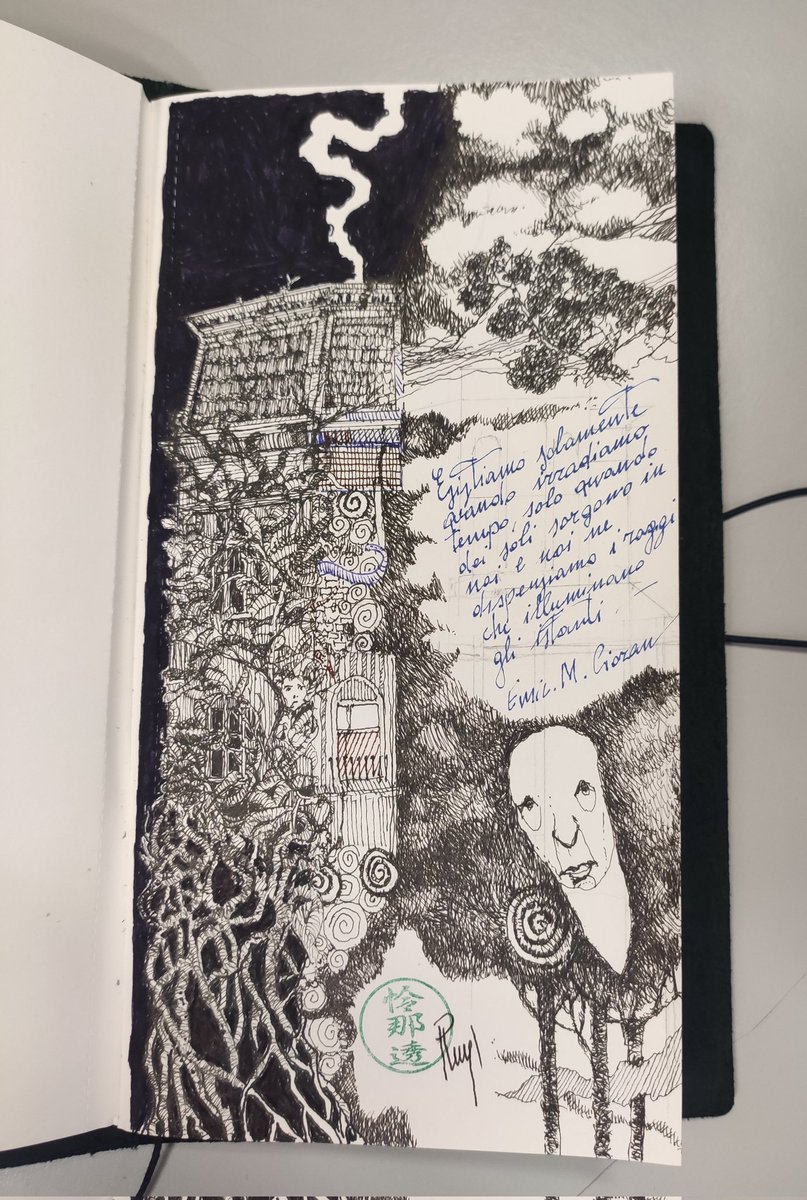 Esistiamo solamente
quando irradiamo
tempo, solo quando
dei soli sorgono in
noi e noi ne
dispensiamo i raggi
che illuminano
gli istanti
Emil. M. Cioran
怜
那
遶